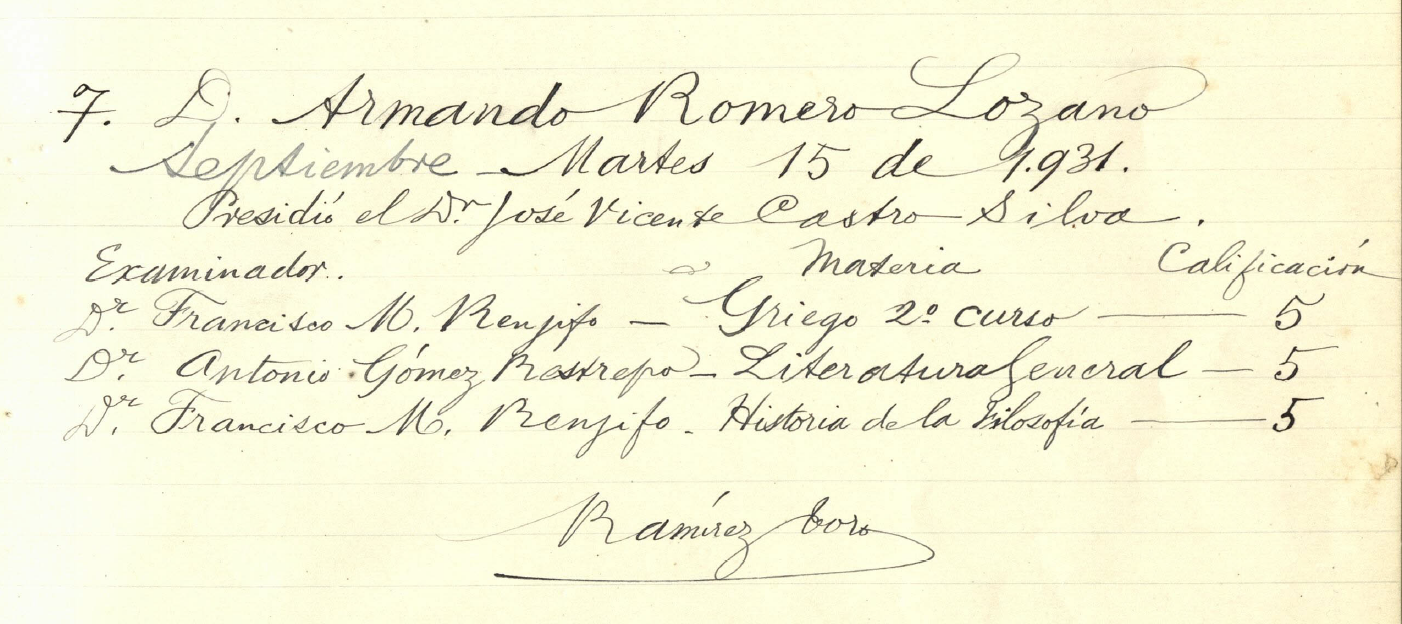 7. D. Armando Romero Lozano
Septiembre - Martes 15 de 1.931.
Presidió el Dr. José Vicente Castro Silva.
Examinador. Materia Calificación
Dr. Francisco M. Renjifo - Griego 2º curso - 5
Dr. Antonio Gómez Restrepo - Literatura General - 5
Dr. Francisco M. Renjifo - Historia de la Filosofía - 5
Ramírez Toro